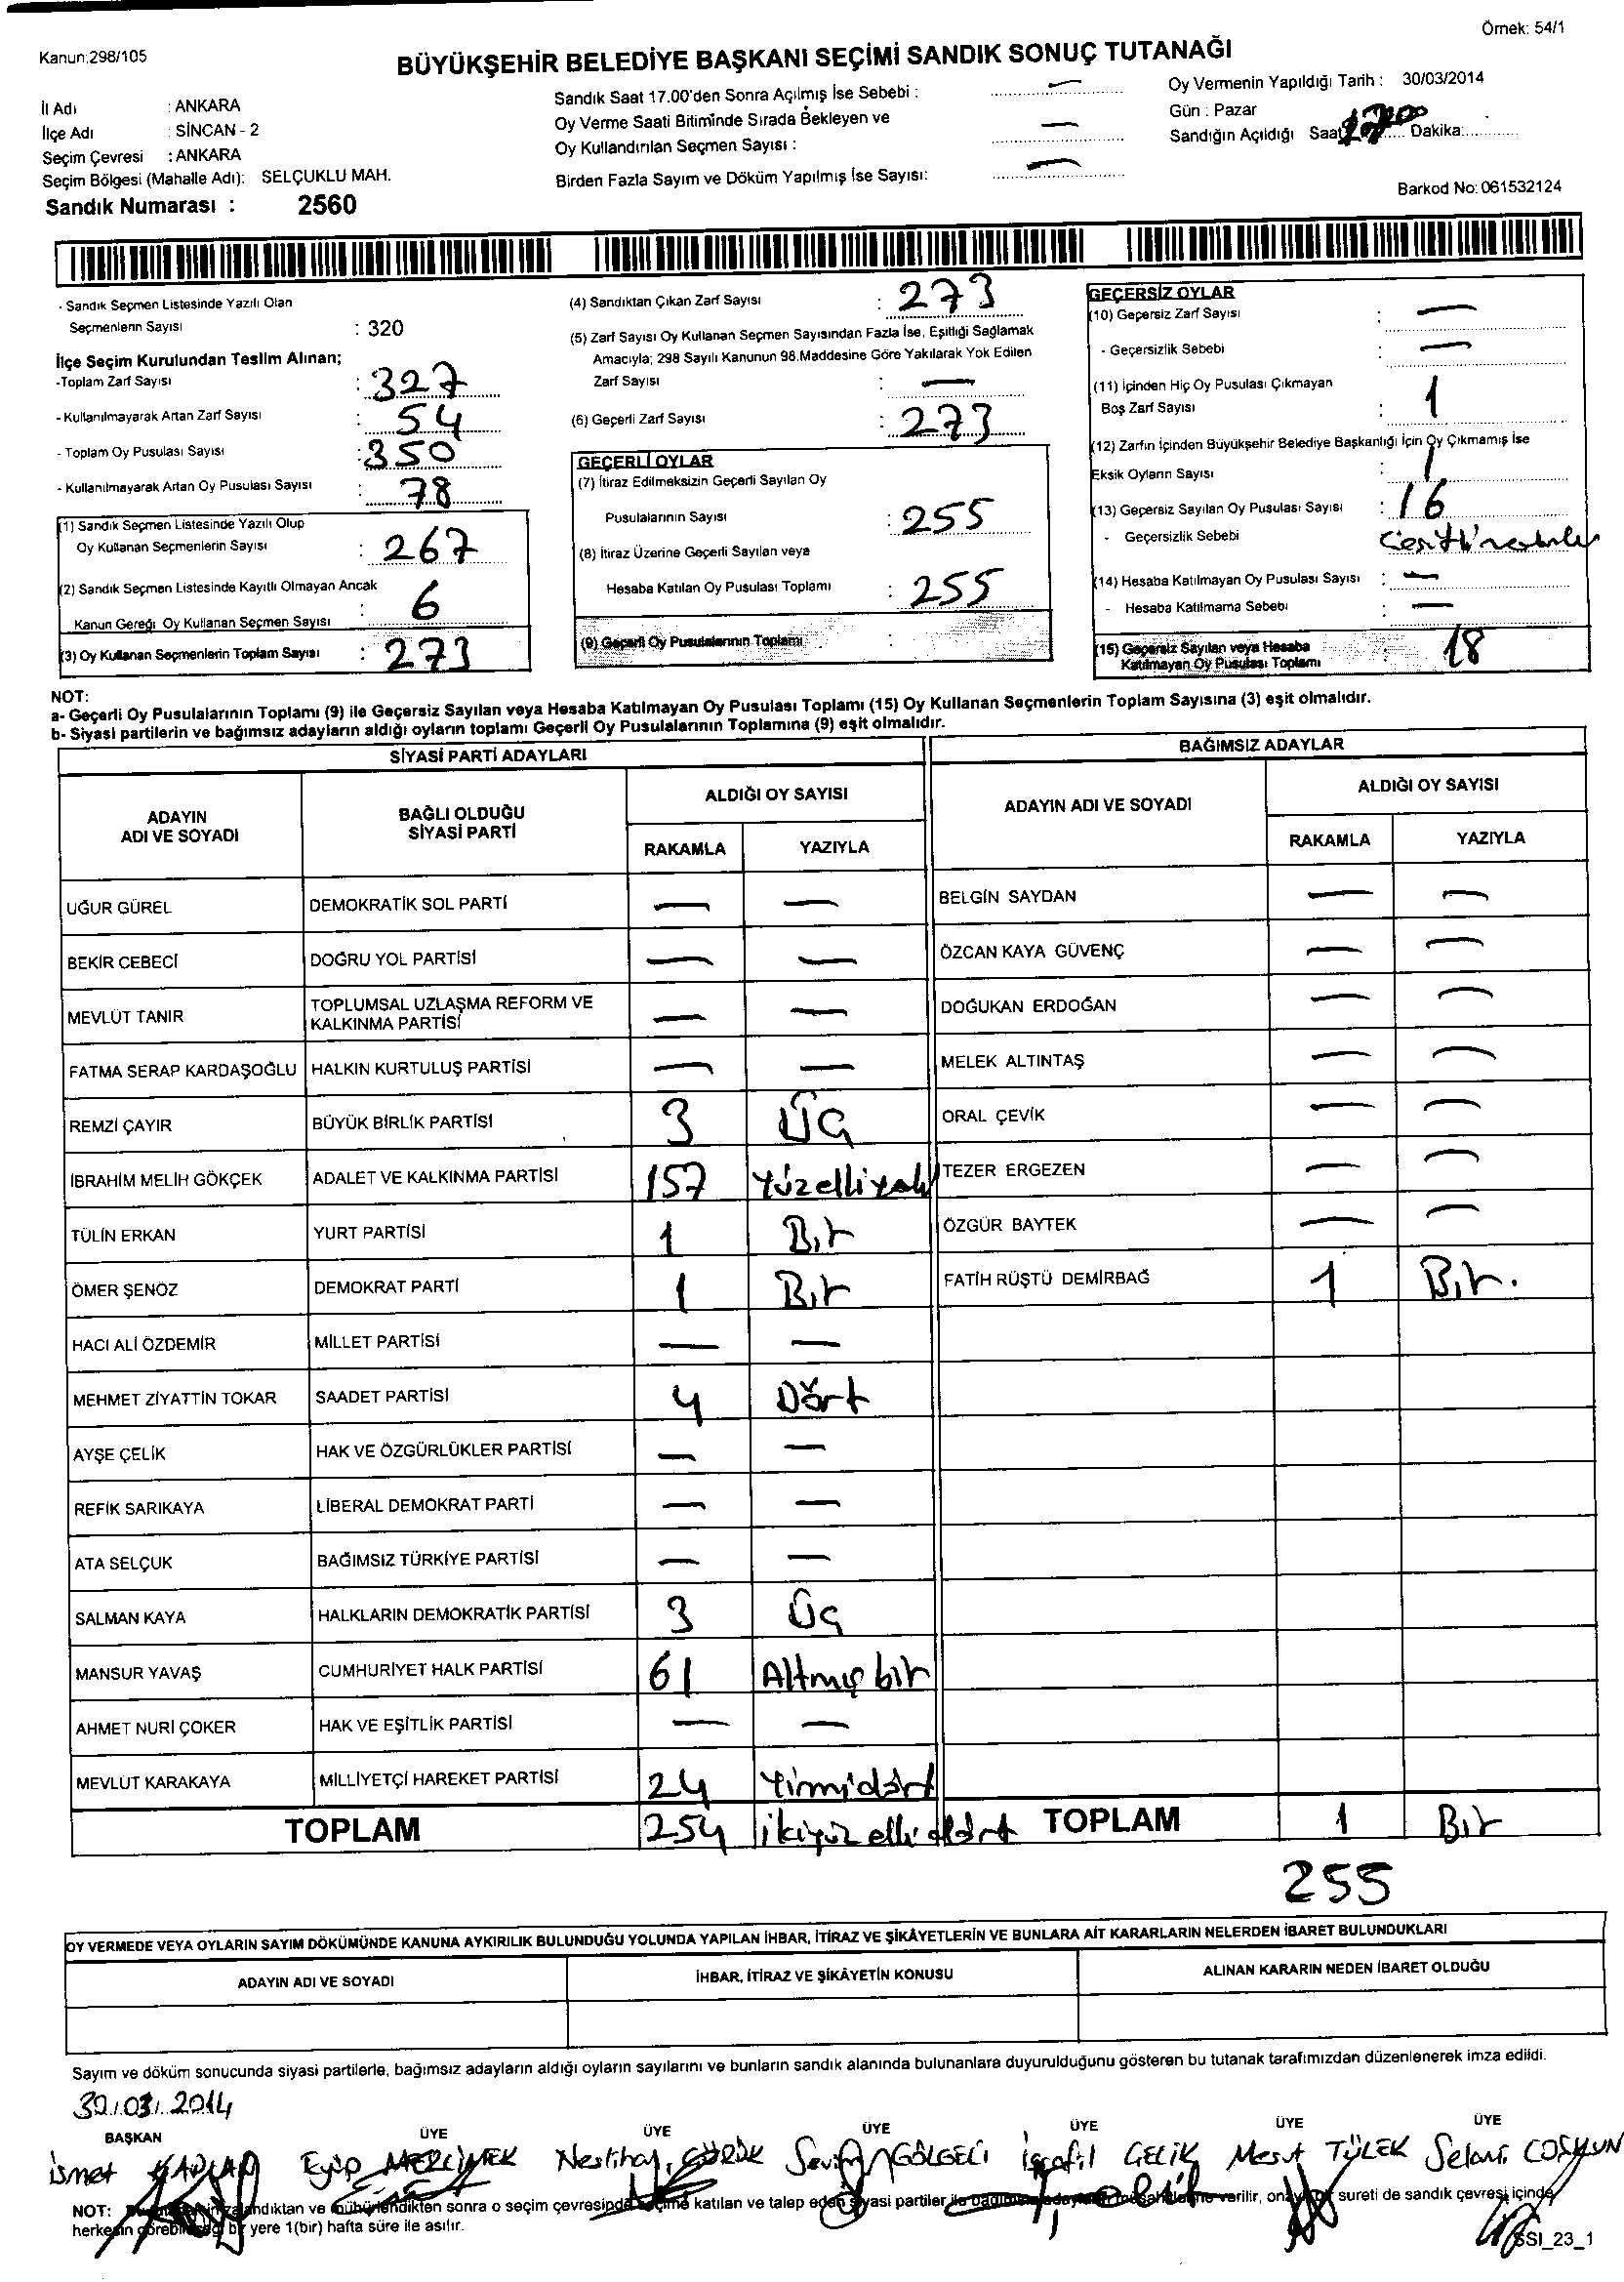 Örnek: 54/1
Kanun:298/105
BÜYÜKŞEHİR BELEDİYE BAŞKANI SEÇİMİ SANDIK SONUÇ TUTANAĞI
İl Adı : ANKARA
İlçe Adı : SİNCAN - 2
Seçim Çevresi : ANKARA
Seçim Bölgesi (Mahalle Adı): SELÇUKLU MAH.
Sandık Numarası : 2560
Sandık Saat 17.00'den Sonra Açılmış İse Sebebi : —
Oy Verme Saati Bitiminde Sırada Bekleyen ve
Oy Kullandırılan Seçmen Sayısı : —
Birden Fazla Sayım ve Döküm Yapılmış İse Sayısı: —
Oy Vermenin Yapıldığı Tarih : 30/03/2014
Gün : Pazar
Sandığın Açıldığı Saat 1700 Dakika:
Barkod No: 061532124
- Sandık Seçmen Listesinde Yazılı Olan
Seçmenlerin Sayısı : 320
İlçe Seçim Kurulundan Teslim Alınan;
-Toplam Zarf Sayısı : 327
- Kullanılmayarak Artan Zarf Sayısı : 54
- Toplam Oy Pusulası Sayısı : 350
- Kullanılmayarak Artan Oy Pusulası Sayısı : 78
(1) Sandık Seçmen Listesinde Yazılı Olup
Oy Kullanan Seçmenlerin Sayısı : 267
(2) Sandık Seçmen Listesinde Kayıtlı Olmayan Ancak
Kanun Gereği Oy Kullanan Seçmen Sayısı : 6
(3) Oy Kullanan Seçmenlerin Toplam Sayısı : 273
(4) Sandıktan Çıkan Zarf Sayısı : 273
(5) Zarf Sayısı Oy Kullanan Seçmen Sayısından Fazla İse, Eşitliği Sağlamak
Amacıyla; 298 Sayılı Kanunun 98.Maddesine Göre Yakılarak Yok Edilen
Zarf Sayısı : —
(6) Geçerli Zarf Sayısı : 273
GEÇERLİ OYLAR
(7) İtiraz Edilmeksizin Geçerli Sayılan Oy
Pusulalarının Sayısı : 255
(8) İtiraz Üzerine Geçerli Sayılan veya
Hesaba Katılan Oy Pusulası Toplamı : 255
(9) Geçerli Oy Pusulalarının Toplamı :
GEÇERSİZ OYLAR
(10) Geçersiz Zarf Sayısı : —
- Geçersizlik Sebebi : —
(11) İçinden Hiç Oy Pusulası Çıkmayan
Boş Zarf Sayısı : 1
(12) Zarfın İçinden Büyükşehir Belediye Başkanlığı İçin Oy Çıkmamış İse
Eksik Oyların Sayısı : 1
(13) Geçersiz Sayılan Oy Pusulası Sayısı : 16
- Geçersizlik Sebebi :
(14) Hesaba Katılmayan Oy Pusulası Sayısı : —
- Hesaba Katılmama Sebebi : —
(15) Geçersiz Sayılan veya Hesaba
Katılmayan Oy Pusulası Toplamı : 18
NOT:
a- Geçerli Oy Pusulalarının Toplamı (9) ile Geçersiz Sayılan veya Hesaba Katılmayan Oy Pusulası Toplamı (15) Oy Kullanan Seçmenlerin Toplam Sayısına (3) eşit olmalıdır.
b- Siyasi partilerin ve bağımsız adayların aldığı oyların toplamı Geçerli Oy Pusulalarının Toplamına (9) eşit olmalıdır.
SİYASİ PARTİ ADAYLARI BAĞIMSIZ ADAYLAR
ADAYIN ADI VE SOYADI BAĞLI OLDUĞU SİYASİ PARTİ ALDIĞI OY SAYISI ADAYIN ADI VE SOYADI ALDIĞI OY SAYISI
RAKAMLA YAZIYLA RAKAMLA YAZIYLA
UĞUR GÜREL DEMOKRATİK SOL PARTİ — — BELGİN SAYDAN — —
BEKİR CEBECİ DOĞRU YOL PARTİSİ — — ÖZCAN KAYA GÜVENÇ — —
MEVLÜT TANIR TOPLUMSAL UZLAŞMA REFORM VE KALKINMA PARTİSİ — — DOĞUKAN ERDOĞAN — —
FATMA SERAP KARDAŞOĞLU HALKIN KURTULUŞ PARTİSİ — — MELEK ALTINTAŞ — —
REMZİ ÇAYIR BÜYÜK BİRLİK PARTİSİ 3 Üç ORAL ÇEVİK — —
İBRAHİM MELİH GÖKÇEK ADALET VE KALKINMA PARTİSİ 157 Yüzelliyedi TEZER ERGEZEN — —
TÜLİN ERKAN YURT PARTİSİ 1 Bir ÖZGÜR BAYTEK — —
ÖMER ŞENÖZ DEMOKRAT PARTİ 1 Bir FATİH RÜŞTÜ DEMİRBAĞ 1 Bir.
HACI ALİ ÖZDEMİR MİLLET PARTİSİ — —
MEHMET ZİYATTİN TOKAR SAADET PARTİSİ 4 Dört
AYŞE ÇELİK HAK VE ÖZGÜRLÜKLER PARTİSİ — —
REFİK SARIKAYA LİBERAL DEMOKRAT PARTİ — —
ATA SELÇUK BAĞIMSIZ TÜRKİYE PARTİSİ — —
SALMAN KAYA HALKLARIN DEMOKRATİK PARTİSİ 3 Üç
MANSUR YAVAŞ CUMHURİYET HALK PARTİSİ 61 Altmış bir
AHMET NURİ ÇOKER HAK VE EŞİTLİK PARTİSİ — —
MEVLÜT KARAKAYA MİLLİYETÇİ HAREKET PARTİSİ 24 Yirmidört
TOPLAM 254 ikiyüz elli dört TOPLAM 1 Bir
255
OY VERMEDE VEYA OYLARIN SAYIM DÖKÜMÜNDE KANUNA AYKIRILIK BULUNDUĞU YOLUNDA YAPILAN İHBAR, İTİRAZ VE ŞİKÂYETLERİN VE BUNLARA AİT KARARLARIN NELERDEN İBARET BULUNDUKLARI
ADAYIN ADI VE SOYADI İHBAR, İTİRAZ VE ŞİKÂYETİN KONUSU ALINAN KARARIN NEDEN İBARET OLDUĞU
Sayım ve döküm sonucunda siyasi partilerle, bağımsız adayların aldığı oyların sayılarını ve bunların sandık alanında bulunanlara duyurulduğunu gösteren bu tutanak tarafımızdan düzenlenerek imza edildi.
30/03/2014
BAŞKAN ÜYE ÜYE ÜYE ÜYE ÜYE ÜYE
ismet Eyüp MERCİMEK Neslihan Sevim GÖLGECİ israfil ÇELİK Mesut TÜLEK Selami COŞKUN
NOT: ve mühürlendikten sonra o seçim çevresinde seçime katılan ve talep eden siyasi partiler ile bağımsız verilir, onaylı bir sureti de sandık çevresi içinde
herkesin görebileceği bir yere 1(bir) hafta süre ile asılır.
SSI_23_1